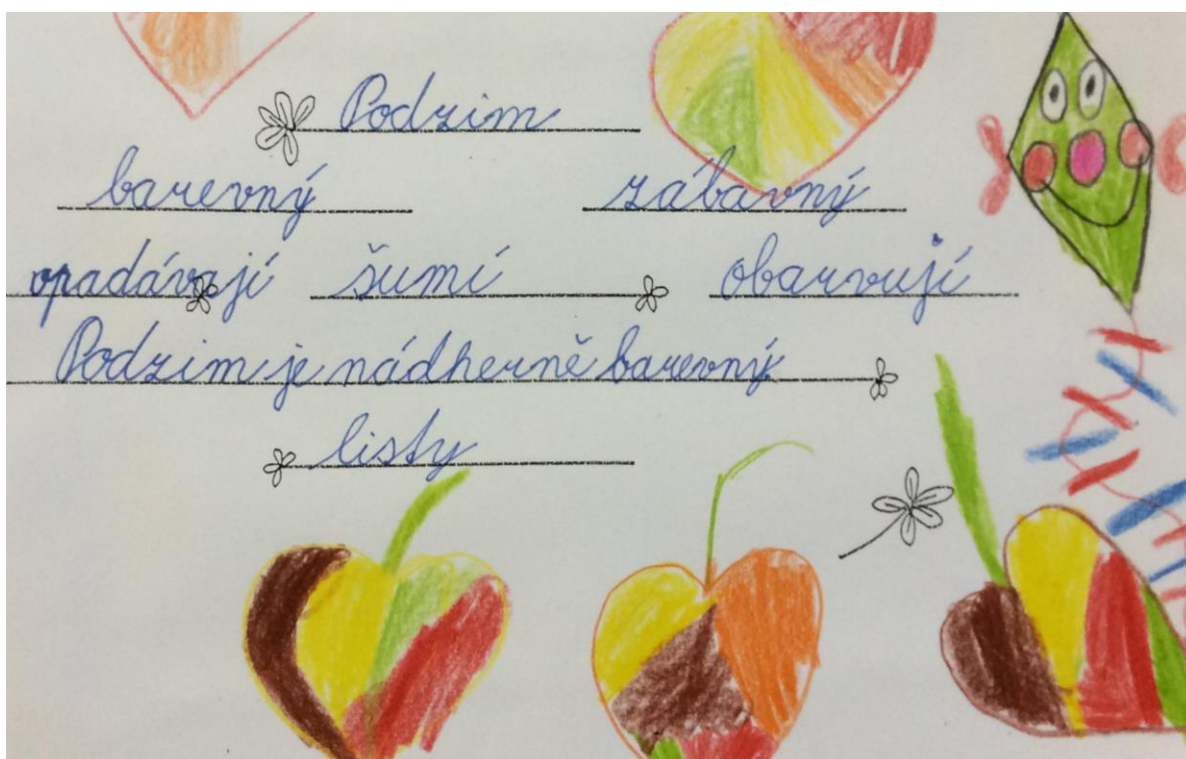 Podzim
barevný zábavný
opadávají šumí obarvují
Podzim je nádherně barevný
listy